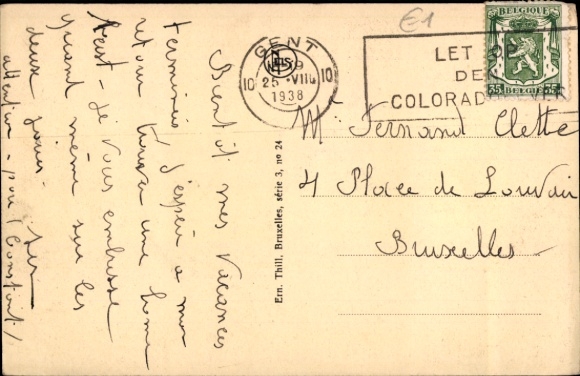 Bientôt mes vacances
terminées j'espère à mon
retour trouver une bonne
Je vous embrasse
quand même sur les
deux joues
attention - pour Constant /
Ern. Thill, Bruxelles, série 3, no 24
£1
GENT
25 ·VIII
10 10
1938
LET OP
DE
COLORADOKEVER
BELGIQUE
35 35
BELGIË
Mr Fernand Clette
4 Place de Louvain
Bruxelles